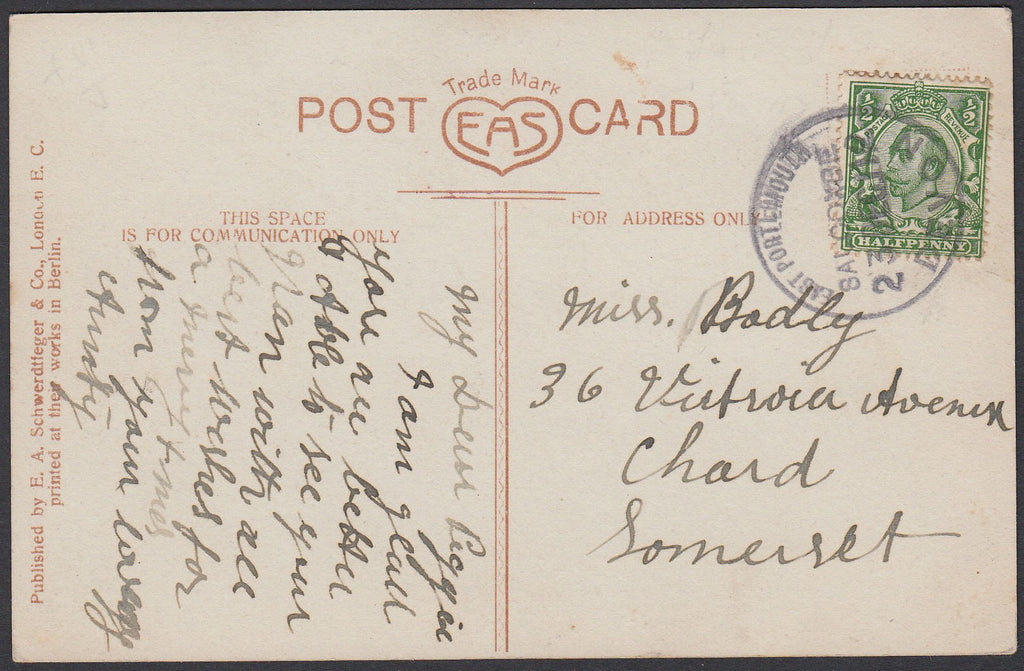 Trade Mark
POST EAS CARD
THIS SPACE
IS FOR COMMUNICATION ONLY
FOR ADDRESS ONLY
½ ½
POSTAGE REVENUE
HALFPENNY
EAST PORTLEMOUTH
23
Miss. Bodly
36 Victroia Avenue
Chard
Somerset
My Dear Peggie
I am glad
you are better
& Able to see your
gran with all
best wishes for
a merry Xmas
from your loving
Aunty
Published by E. A. Schwerdtfeger & Co., London E. C.
printed at their works in Berlin.